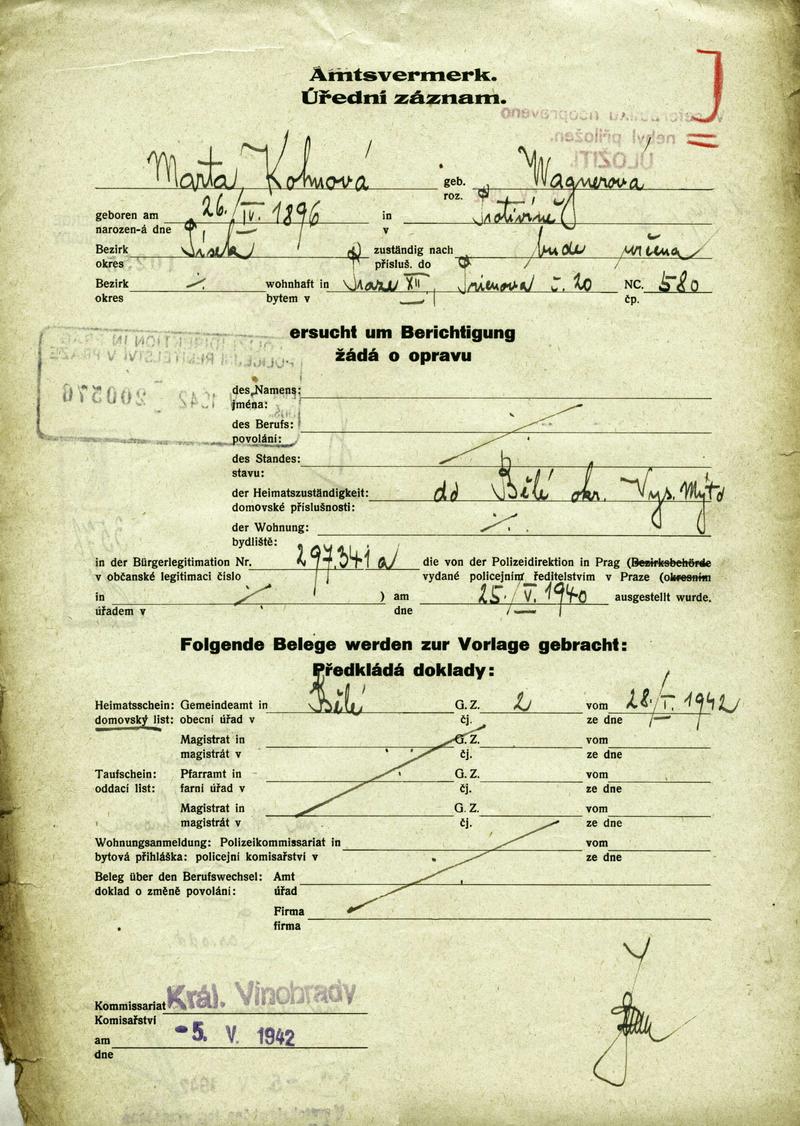 Amtsvermerk.
Úřední záznam.
Marta Kohnová geb. Wagnerová
roz.
geboren am 26./IV. 1896 in Protivíně
narozen-á dne v
Bezirk Písek zuständig nach bude určena
okres přísluš. do
Bezirk wohnhaft in Praze XII., č. 20 NC. 580
okres bytem v čp.
ersucht um Berichtigung
žádá o opravu
des Namens:
jména:
des Berufs:
povolání:
des Standes:
stavu:
der Heimatszuständigkeit: do Bělé okr. Vys. Mýto
domovské příslušnosti:
der Wohnung:
bydliště:
in der Bürgerlegitimation Nr. 297.341 a/ die von der Polizeidirektion in Prag (Bezirksbehörde
v občanské legitimaci číslo vydané policejním ředitelstvím v Praze (okresním
in ) am 25./V. 1940 ausgestellt wurde.
úřadem v dne
Folgende Belege werden zur Vorlage gebracht:
Předkládá doklady:
Heimatsschein: Gemeindeamt in Bělé G. Z. 2 vom 28./I. 1942
domovský list: obecní úřad v čj. ze dne
Magistrat in G. Z. vom
magistrát v čj. ze dne
Taufschein: Pfarramt in G. Z. vom
oddací list: farní úřad v čj. ze dne
Magistrat in G. Z. vom
magistrát v čj. ze dne
Wohnungsanmeldung: Polizeikommissariat in vom
bytová přihláška: policejní komisařství v ze dne
Beleg über den Berufswechsel: Amt
doklad o změně povolání: úřad
Firma
firma
Kommissariat Král. Vinohrady
Komisařství
am -5. V. 1942
dne